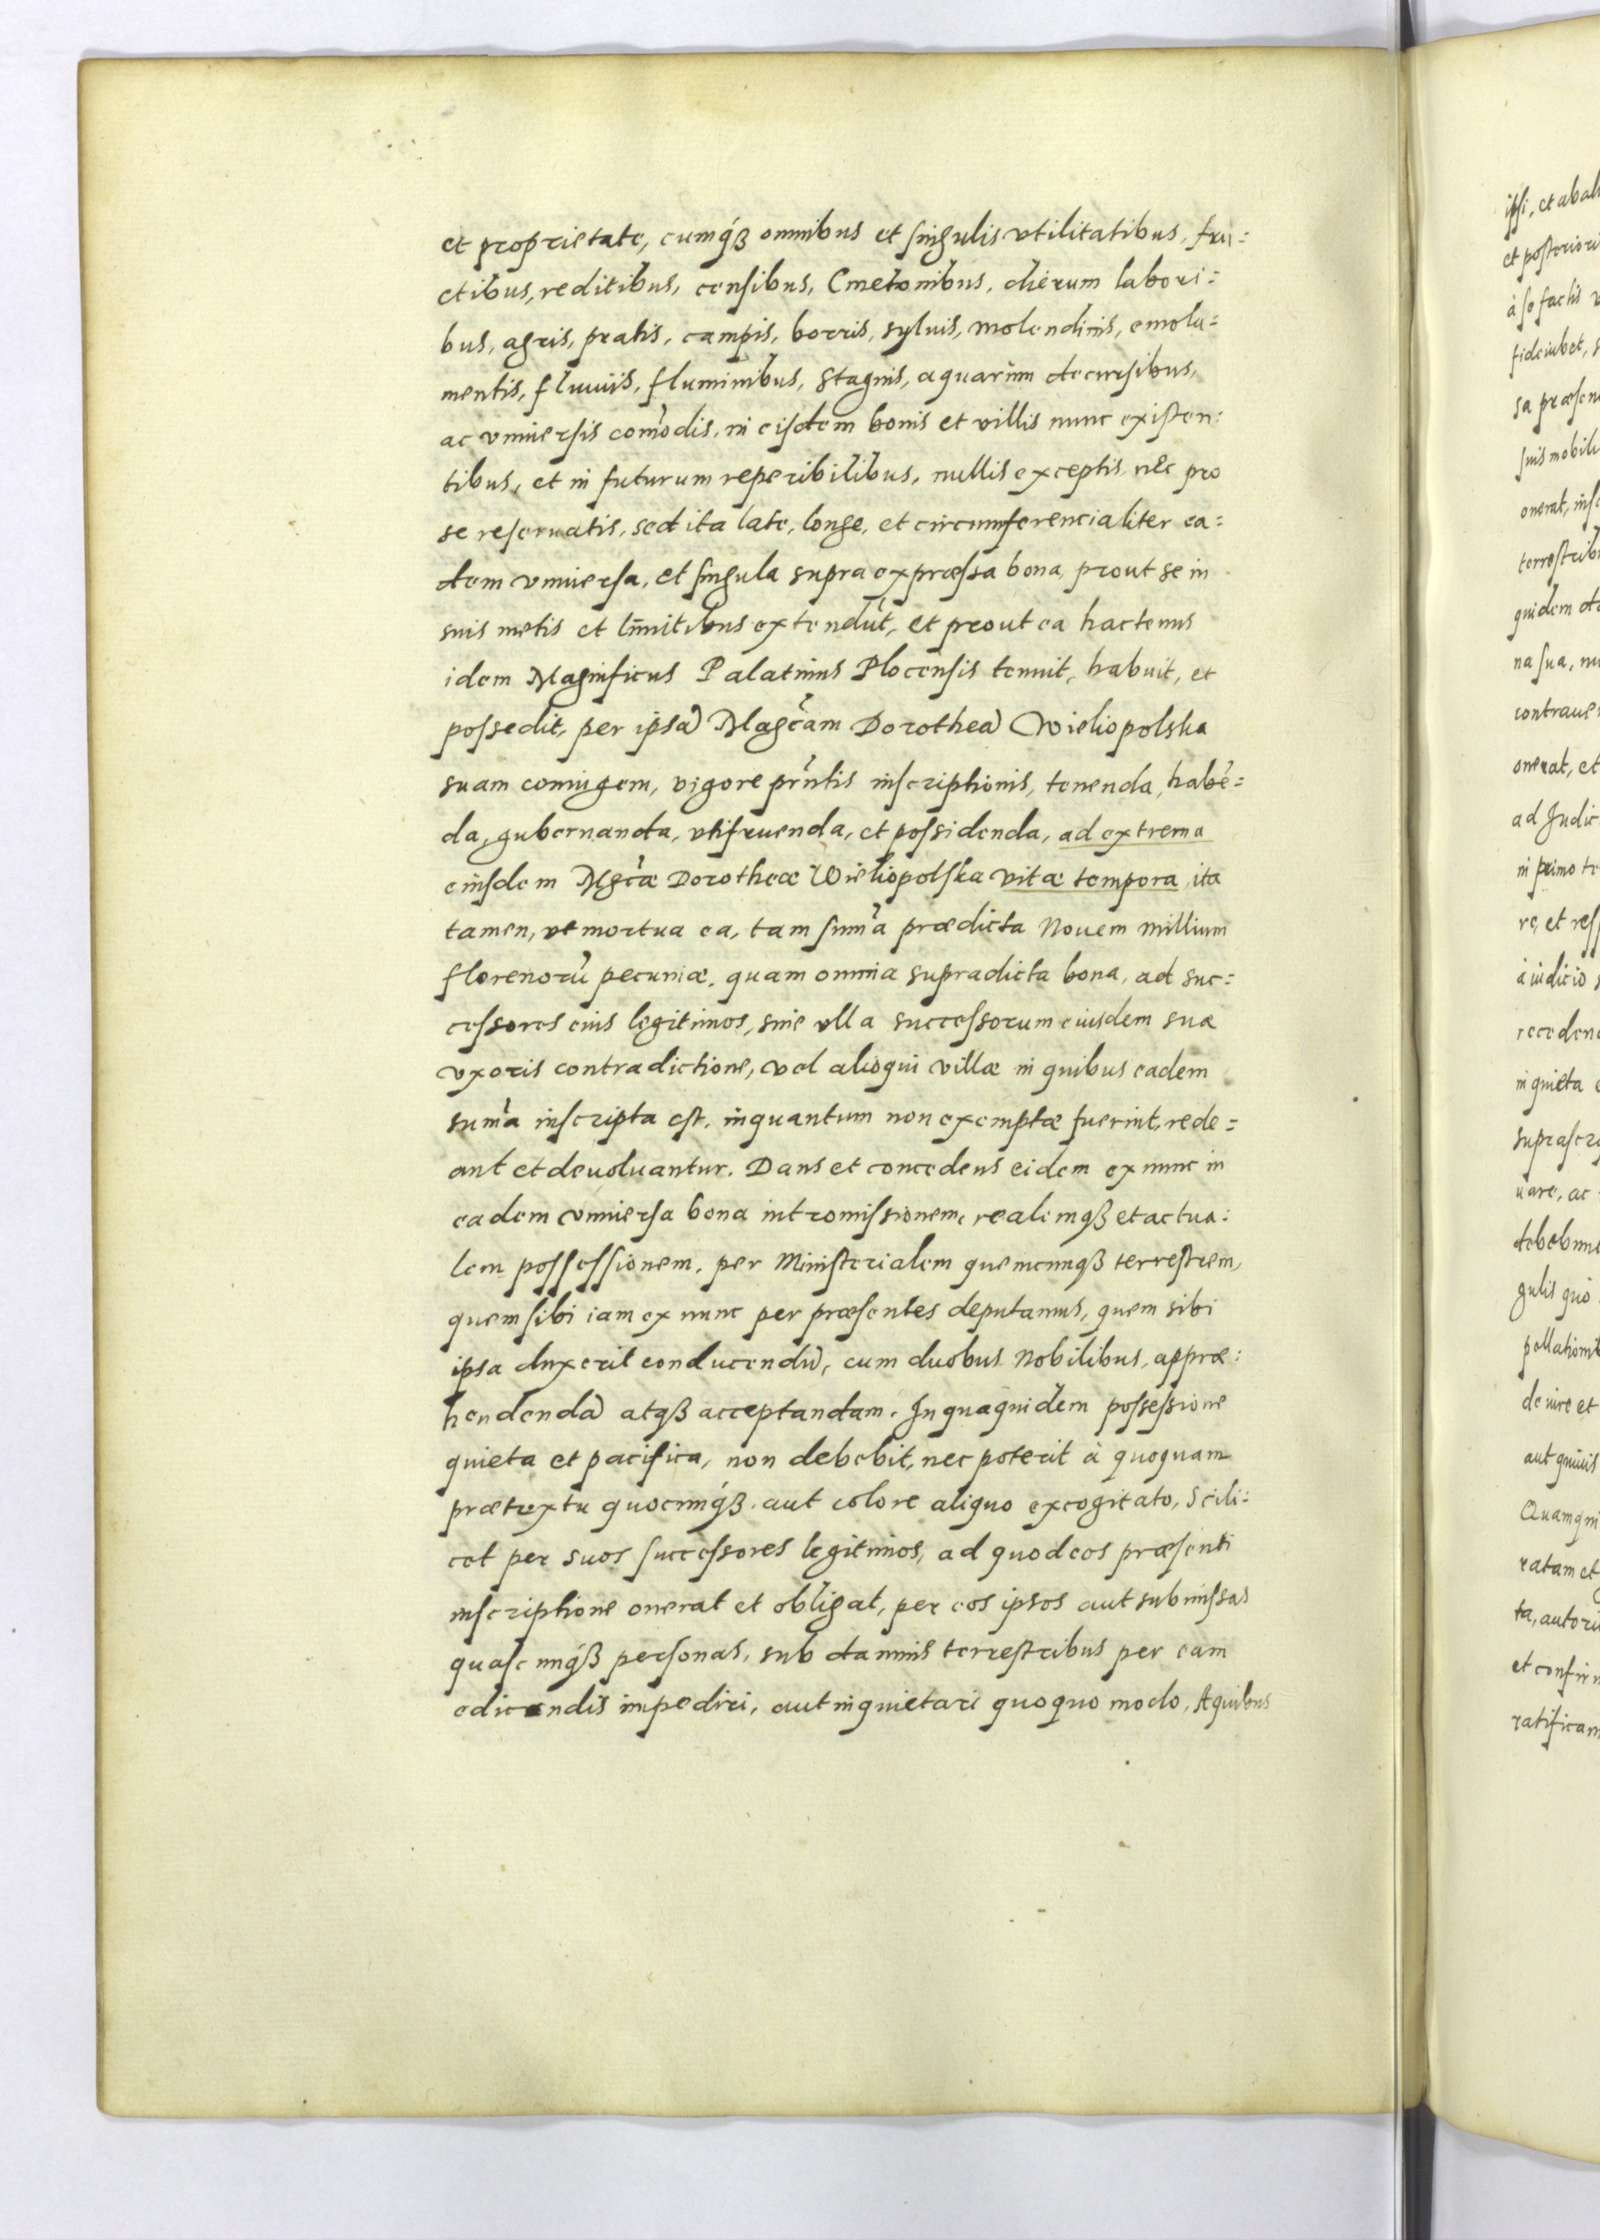 et proprietate, cumq́ꝫ omnibus et singulis vtilitatibus, fru:
ctibus, reditibus, censibus, Cmetonibus, dierum labori:
bus, agris, pratis, campis, borris, syluis, molendinis, emolu:
mentis, fluuiis, fluminibus, stagnis, aquarum decursibus,
ac vniuersis com̃odis, in eisdem bonis et villis nunc existen:
tibus, et in futurum reperibilibus, nullis exceptis nec pro
se reseruatis, sed ita late, longe, et circumferencialiter ea:
dem vniuersa, et singula supra expræssa bona, prout se in
suis metis et limitibus extendūt, et prout ea hactenus
idem Magnificus Palatinus Plocensis tenuit, habuit, et
possedit, per ipsā Magcām Dorotheā Wieliopolska
suam coniugem, vigore pr̃ntis inscriptionis, tenenda, habē:
da, gubernanda, vtifruenda, et possidenda, ad extrema
eiusdem Mgcæ Dorotheæ Wieliopolska vitæ tempora, ita
tamen, vt mortua ea, tam sum̃a prædicta Nouem millium
florenorū pecuniæ, quam omnia supradicta bona, ad suc:
cessores eius legitimos, sine vlla successorum eiusdem suæ
vxoris contradictione, vel alioqui villæ in quibus eadem
sum̃a inscripta est, inquantum non exemptæ fuerint, rede:
ant et deuoluantur. Dans et concedens eidem ex nunc in
eadem vniuersa bona intromissionem, realemqꝫ et actua:
lem possessionem, per Ministerialem quemcunqꝫ terrestrem,
quem sibi iam ex nunc per præsentes deputamus, quem sibi
ipsa duxerit conducendū, cum duobus Nobilibus, appræ:
hendendā atqꝫ acceptandam. In qua quidem possessione
quieta et pacifica, non debebit, nec poterit à quoquam
prætextu quocunq́ꝫ, aut colore aliquo excogitato, Scili:
cet per suos successores legitimos, ad quod eos præsenti
inscriptione onerat et obligat, per eos ipsos aut submissas
quascunq́ꝫ personas, sub damnis terrestribus per eam
edicendis impediri, aut inquietari quoquo modo, A quibus
ipsi, et abali
et posteriori
à se factis
fideiubet,
sa præsen
suis mobili
onerat,
terrestrib
quidem
na sua,
contraue
onerat, et
ad Judic
in primo te
re, et res
à iudicio
recedend
inquieta
suprascr
uare, ac
debebun
gulis quo
pellationi
de iure et
aut
Quamqui
ratam et
ta, autori
et confir
ratificam